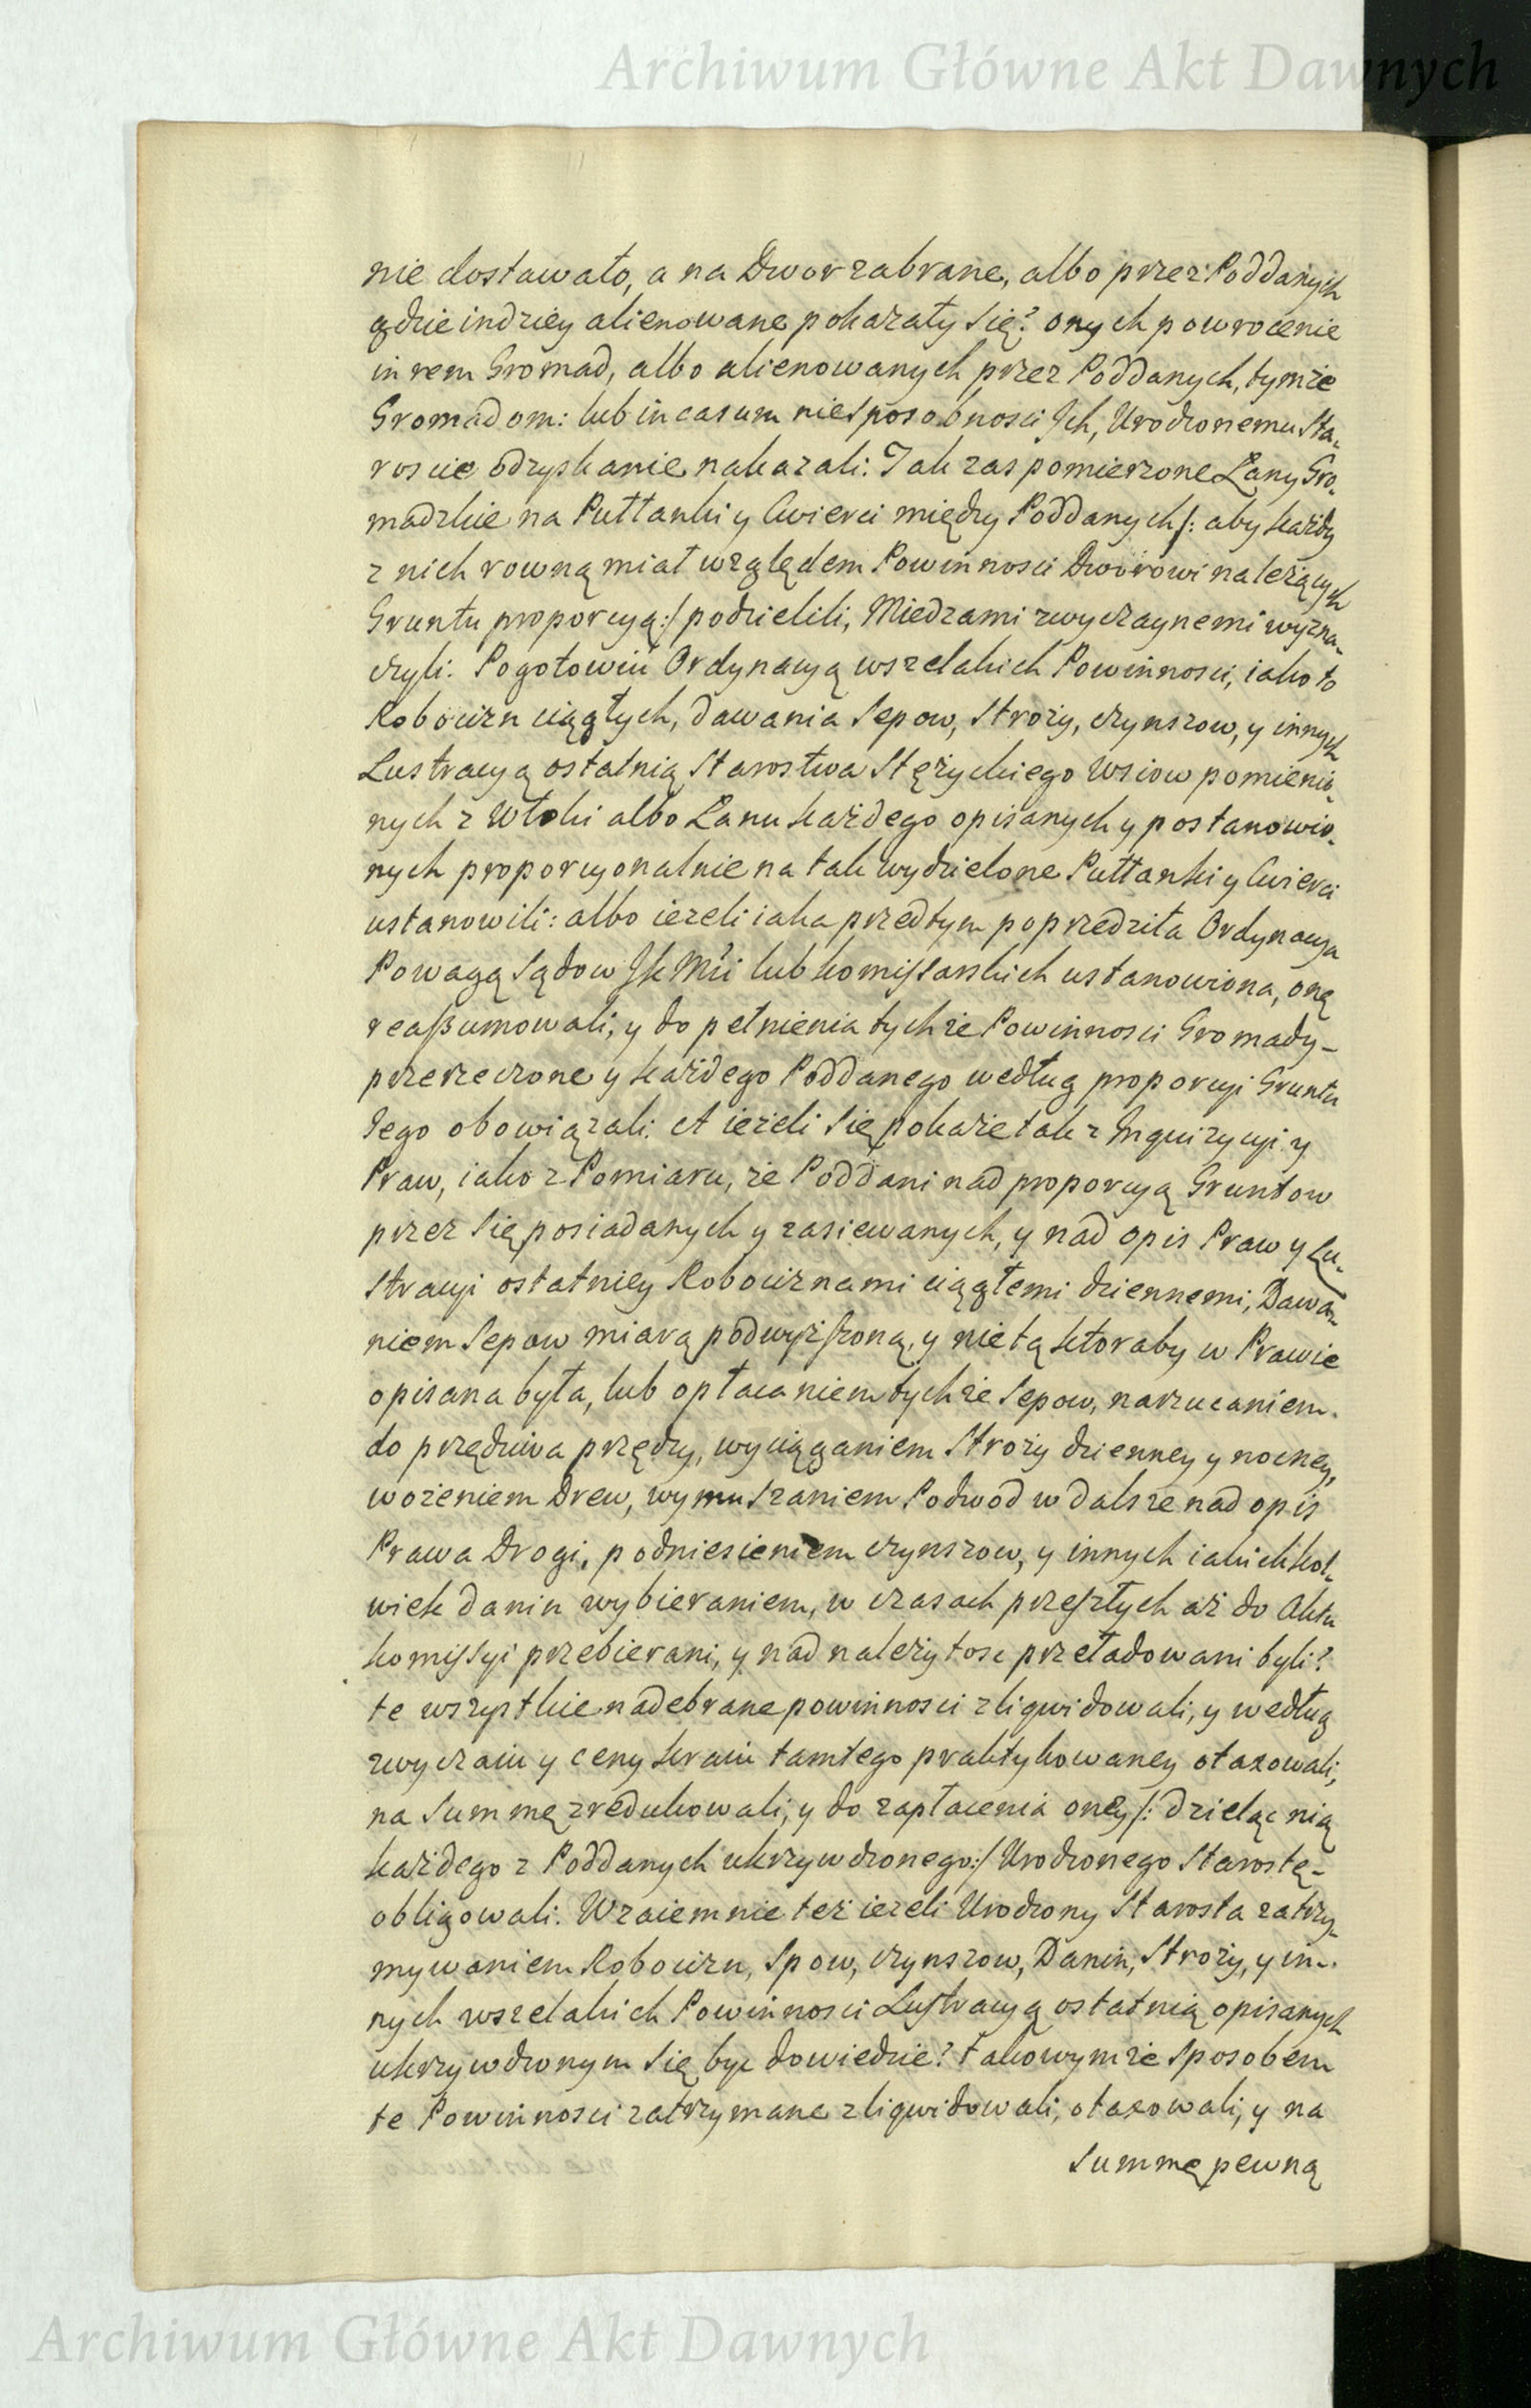 Archiwum Główne Akt Dawnych
nie dostawało, a na Dwor zabrane, albo przez Poddanych
gdzie indziey alienowane pokazały się? onych powrocenie
in rem Gromad, albo alienowanych przez Poddanych, tymże
Gromadom: lub in casum niesposobnosci Jch, Urodzonemu Sta-
roscie odzyskanie nakazali: Tak zas pomierzone Łany Gro-
madzkie na Pułłanki y Cwierci między Poddanych /: aby każdy
z nich rowną miał względem Powinnosci Dworowi należących
Gruntu proporcyą :/ podzielili, Miedzami zwyczaynemi wyzna-
czyli: Pogotowiu Ordynacyą wszelakich Powinnosci, iako to
Robocizn ciągłych, dawania Sepow, Stroży, czynszow, y innych
Lustracyą ostatnią Starostwa Stężyckiego Wsiow pomienio-
nych z Włoki albo Łanu każdego opisanych y postanowio-
nych proporcyonalnie na tak wydzielone Pułłanki y Cwierci
ustanowili: albo ieżeli iaka przedtym poprzedziła Ordynacya
Powagą Sądow JKMci lub komissarskich ustanowiona, onę
reaßumowali, y do pełnienia tychże Powinnosci Gromady-
przerzeczone y każdego Poddanego według proporcyi Gruntu
Jego obowiązali. A ieżeli się pokaże tak z Inquizycyi y
Praw, iako z Pomiaru, że Poddani nad proporcyą Gruntow
przez się posiadanych y zasiewanych, y nad opis Praw y Lu-
stracyi ostatniey Robociznami ciągłemi dziennemi, Dawa-
niem Sepow miarą podwyższoną, y nie tą ktoraby w Prawie
opisana była, lub opłacaniem tychże Sepow, narzucaniem
do przędziwa przędzy, wyciąganiem Stroży dzienney y nocney,
wożeniem Drew, wymuszaniem Podwod w dalsze nad opis
Prawa Drogi, podniesieniem czynszow, y innych iakichkol-
wiek danin wybieraniem, w czasach przeszłych aż do Aktu
komissyi przebierani, y nad należytosc przeładowani byli?
te wszystkie nadebrane powinnosci zliqwidowali, y według
zwyczaiu y ceny kraiu tamtego praktykowaney otaxowali,
na Summę zredukowali, y do zapłacenia oney /: dzieląc nią
każdego z Poddanych ukrzywdzonego :/ Urodzonego Starostę-
obligowali. Wzaiemnie też ieżeli Urodzony Starosta zatrzy-
mywaniem Robocizn, Spow, czynszow, Danin, Stroży, y in-
nych wszelakich Powinnosci Lustracyą ostatnią opisanych
ukrzywdzonym się byc dowiedzie? takowymże sposobem
te Powinnosci zatrzymane zliqwidowali, otaxowali, y na
Summę pewną
Archiwum Główne Akt Dawnych